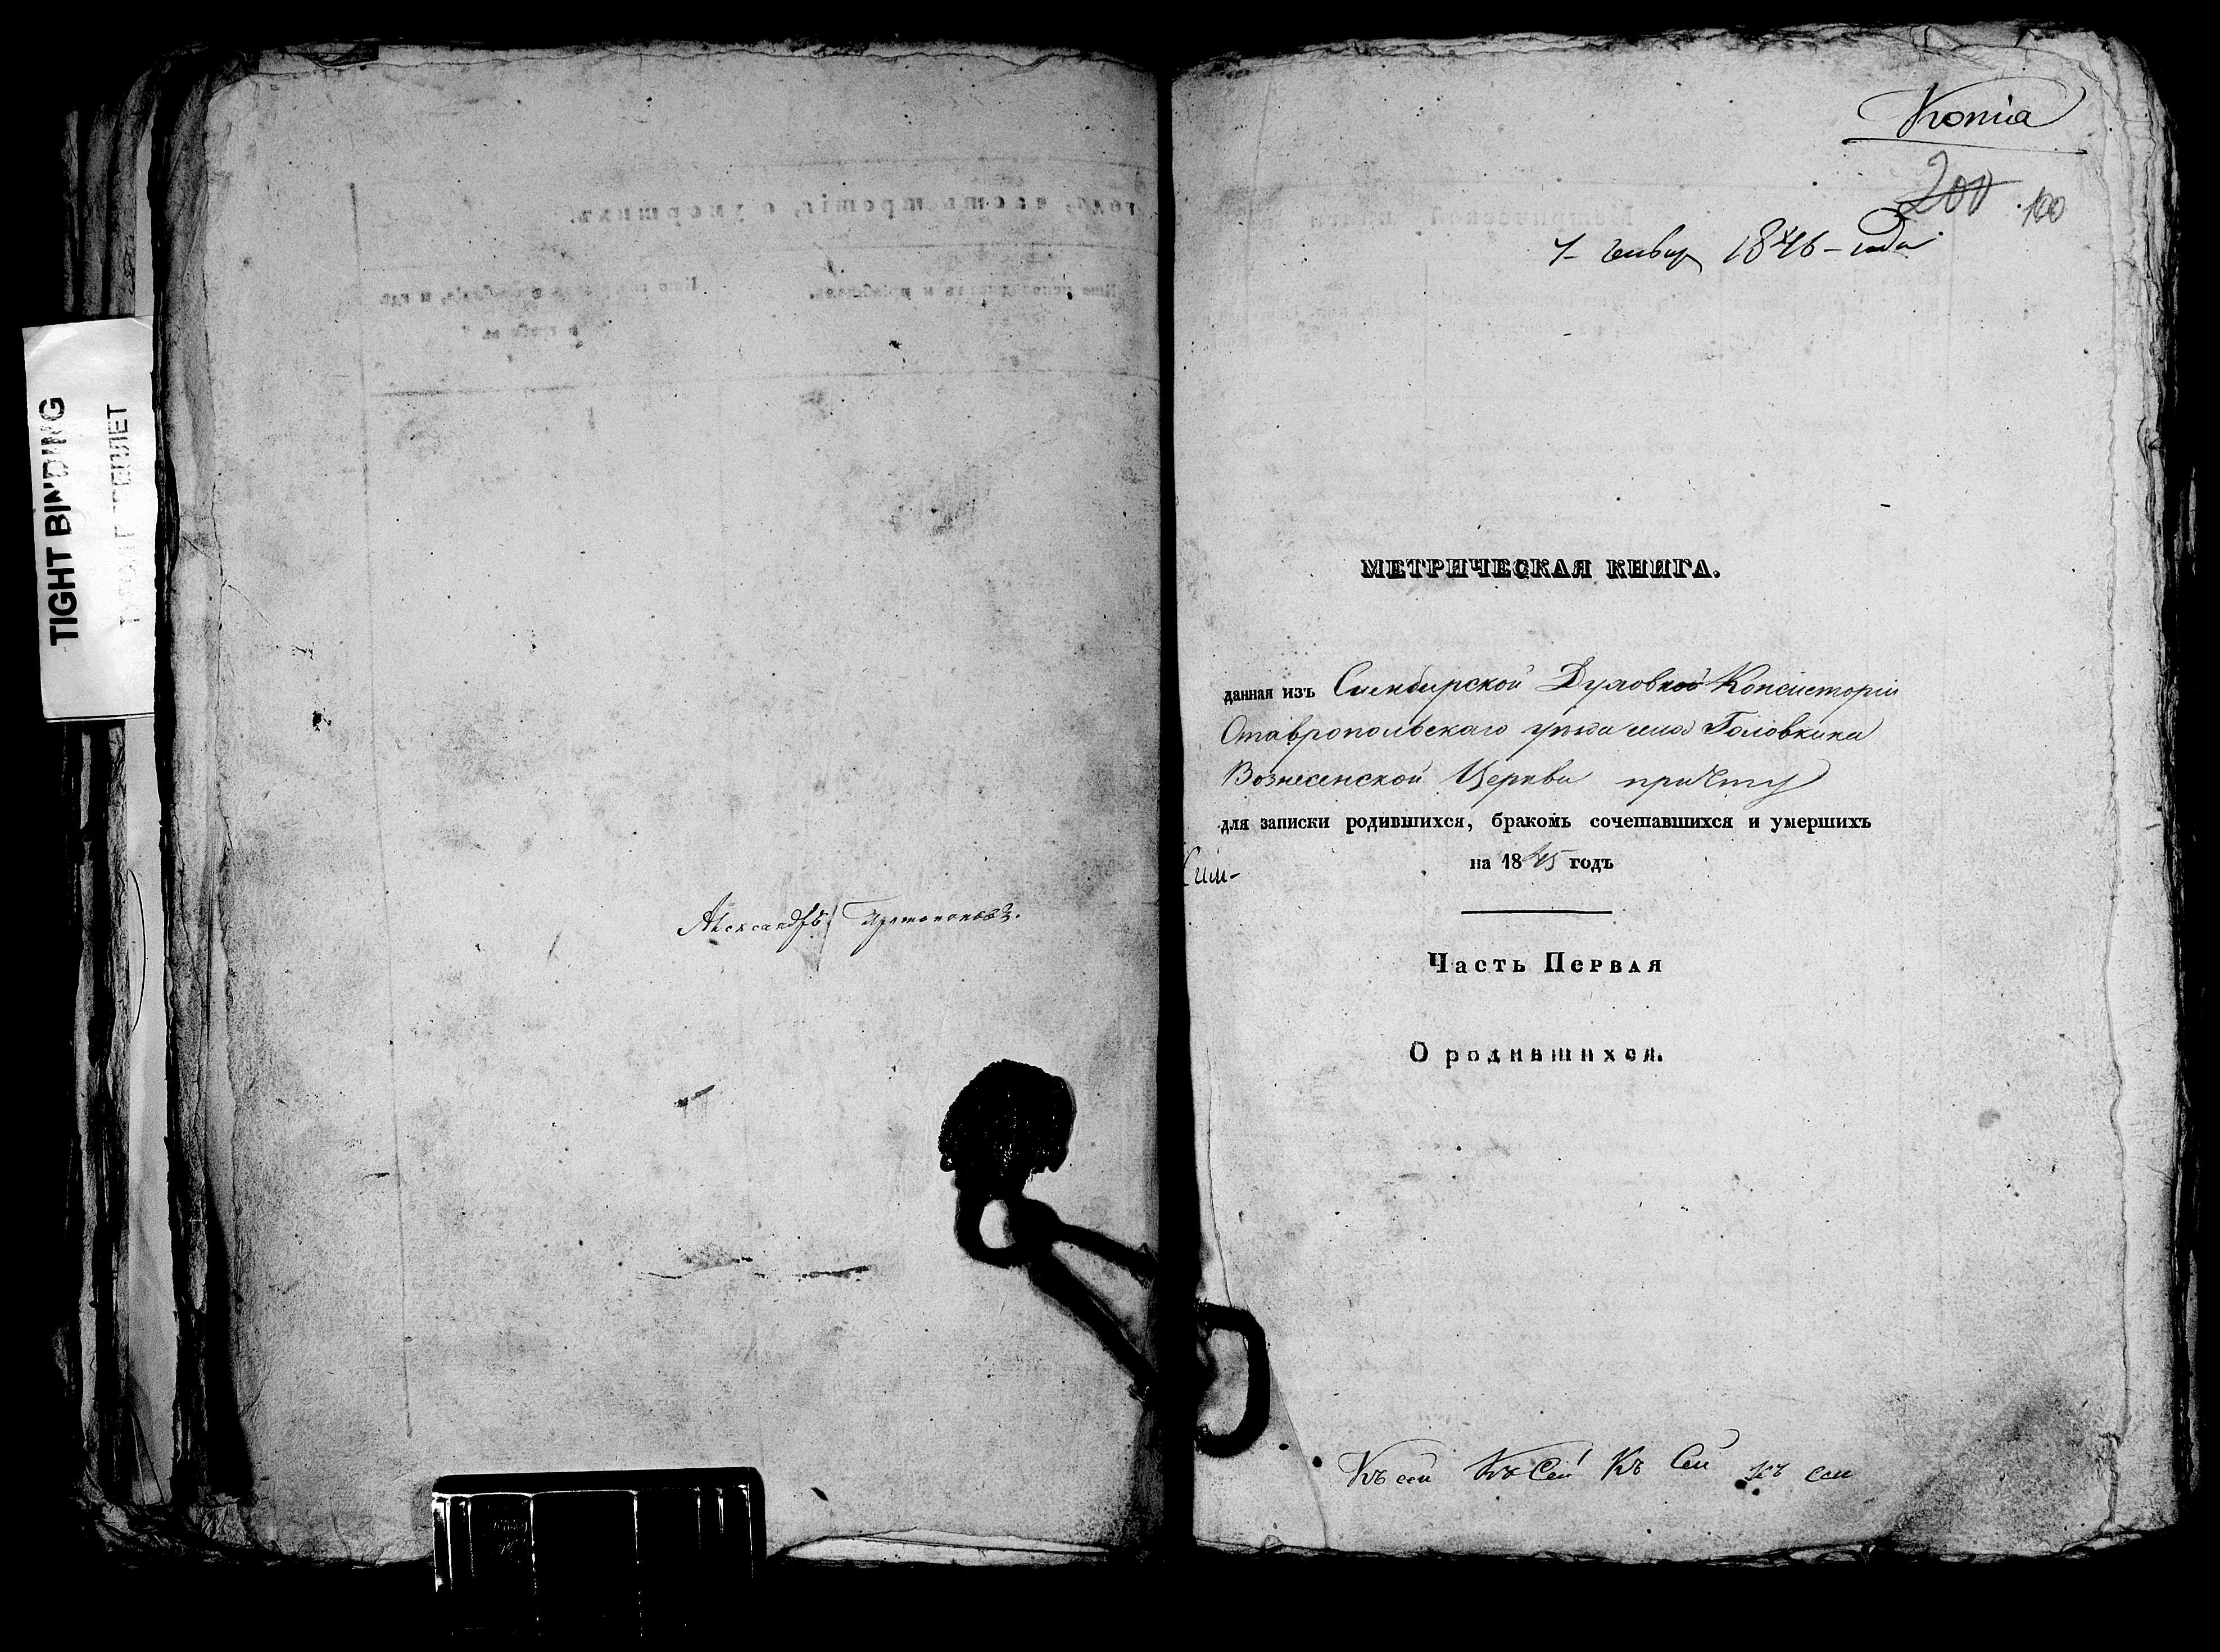 TIGHT BINDING
Александръ Протопоповъ.
Копія
200 100
7 генвар 1846 года
МЕТРИЧЕСКАЯ КНИГА.
данная изъ Симбирской Духовной Консисторіи
Ставропольскаго уѣзда села Головкина
Вознесенской Церкви причту
для записки родившихся, бракомъ сочетавшихся и умершихъ
на 1845 годъ
Сим-
Часть Первая
О родившихся.
Къ сей Къ Сей Къ Сей къ сей